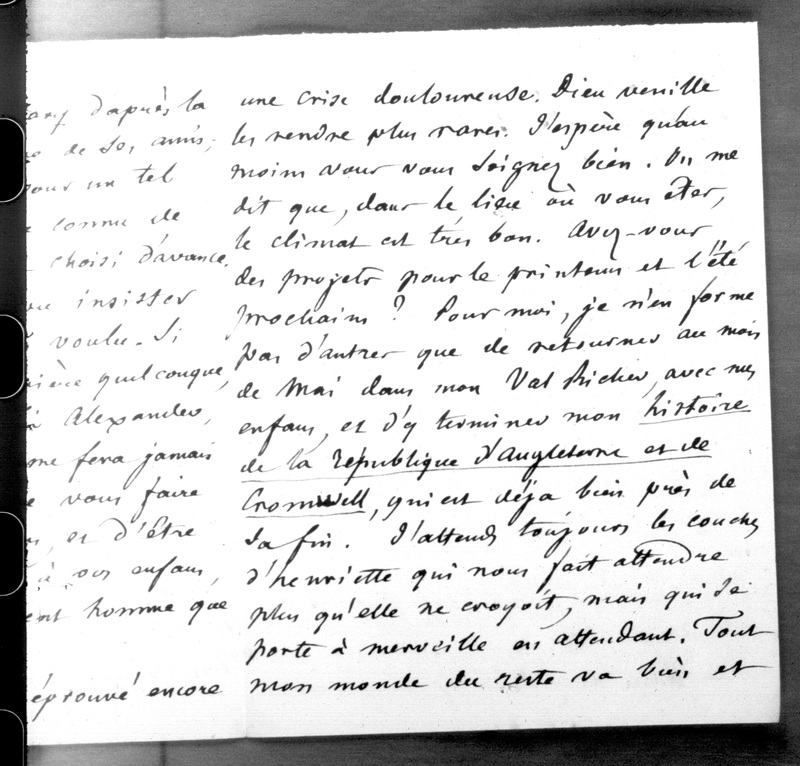 d'après la
de ses amis;
pour un tel
connu de
choisi d'avance.
insister
voulu. Si
quelconque,
Alexander,
me fera jamais
vous faire
et d'être
à vos enfans,
homme que
éprouvé encore
une crise douloureuse. Dieu veuille
les rendre plus rares. J'espère qu'au
moins vous vous soignez bien. On me
dit que, dans le lieu où vous êtes,
le climat est très bon. Avez-vous
des projets pour le printems et l'été
prochains ? Pour moi, je n'en forme
pas d'autres que de retourner au mois
de Mai dans mon Val Richer, avec mes
enfans, et d'y terminer mon histoire
de la république d'Angleterre et de
Cromwell, qui est déja bien près de
sa fin. J'attends toujours les couches
d'henriette qui nous fait attendre
plus qu'elle ne croyoit, mais qui se
porte à merveille en attendant. Tout
mon monde du reste va bien et